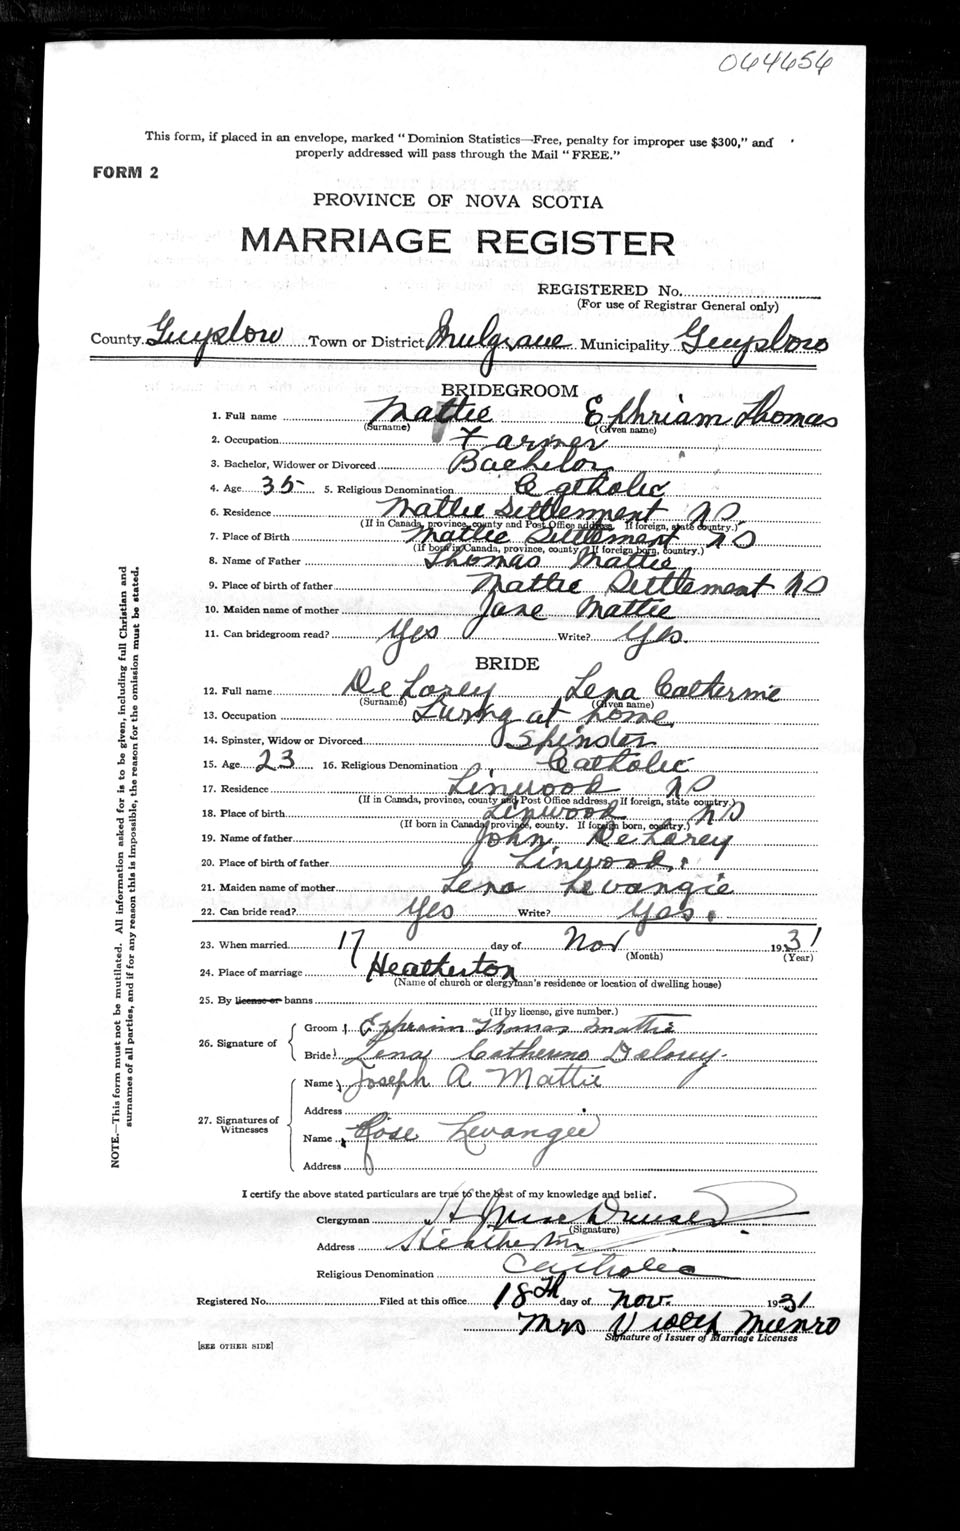 064656
This form, if placed in an envelope, marked "Dominion Statistics—Free, penalty for improper use $300," and
properly addressed will pass through the Mail "FREE."
FORM 2
PROVINCE OF NOVA SCOTIA
MARRIAGE REGISTER
REGISTERED No.
(For use of Registrar General only)
County Guysboro Town or District Mulgrave Municipality Guysboro
BRIDEGROOM
1. Full name Mattie Ephriam Thomas
(Surname) (Given name)
2. Occupation Farmer
3. Bachelor, Widower or Divorced Bachelor
4. Age 35 5. Religious Denomination Catholic
6. Residence Mattie Settlement NS
(If in Canada, province, county and Post Office address. If foreign, state country.)
7. Place of Birth Mattie Settlement NS
(If born in Canada, province, county. If foreign born, country.)
8. Name of Father Thomas Mattie
9. Place of birth of father Mattie Settlement NS
10. Maiden name of mother Jane Mattie
11. Can bridegroom read? Yes Write? Yes.
BRIDE
12. Full name DeLorey Lena Catherine
(Surname) (Given name)
13. Occupation Living at home
14. Spinster, Widow or Divorced Spinster
15. Age 23 16. Religious Denomination Catholic
17. Residence Linwood NS
(If in Canada, province, county and Post Office address. If foreign, state country.)
18. Place of birth Linwood NS
(If born in Canada, province, county. If foreign born, country.)
19. Name of father John DeLorey
20. Place of birth of father Linwood.
21. Maiden name of mother Lena Levangie
22. Can bride read? Yes Write? Yes.
23. When married 17 day of Nov 1931
(Month) (Year)
24. Place of marriage Heatherton
(Name of church or clergyman's residence or location of dwelling house)
25. By license or banns
(If by license, give number.)
26. Signature of
Groom Ephraim Thomas Mattie
Bride Lena Catherine Delorey
27. Signatures of Witnesses
Name Joseph A Mattie
Address
Name Rose Levangie
Address
I certify the above stated particulars are true to the best of my knowledge and belief.
Clergyman
(Signature)
Address Heatherton
Religious Denomination Catholic
Registered No. Filed at this office 18th day of Nov. 1931
Mrs Violet Munro
Signature of Issuer of Marriage Licenses
[SEE OTHER SIDE]
NOTE.—This form must not be mutilated. All information asked for is to be given, including full Christian and
surnames of all parties, and if for any reason this is impossible, the reason for the omission must be stated.